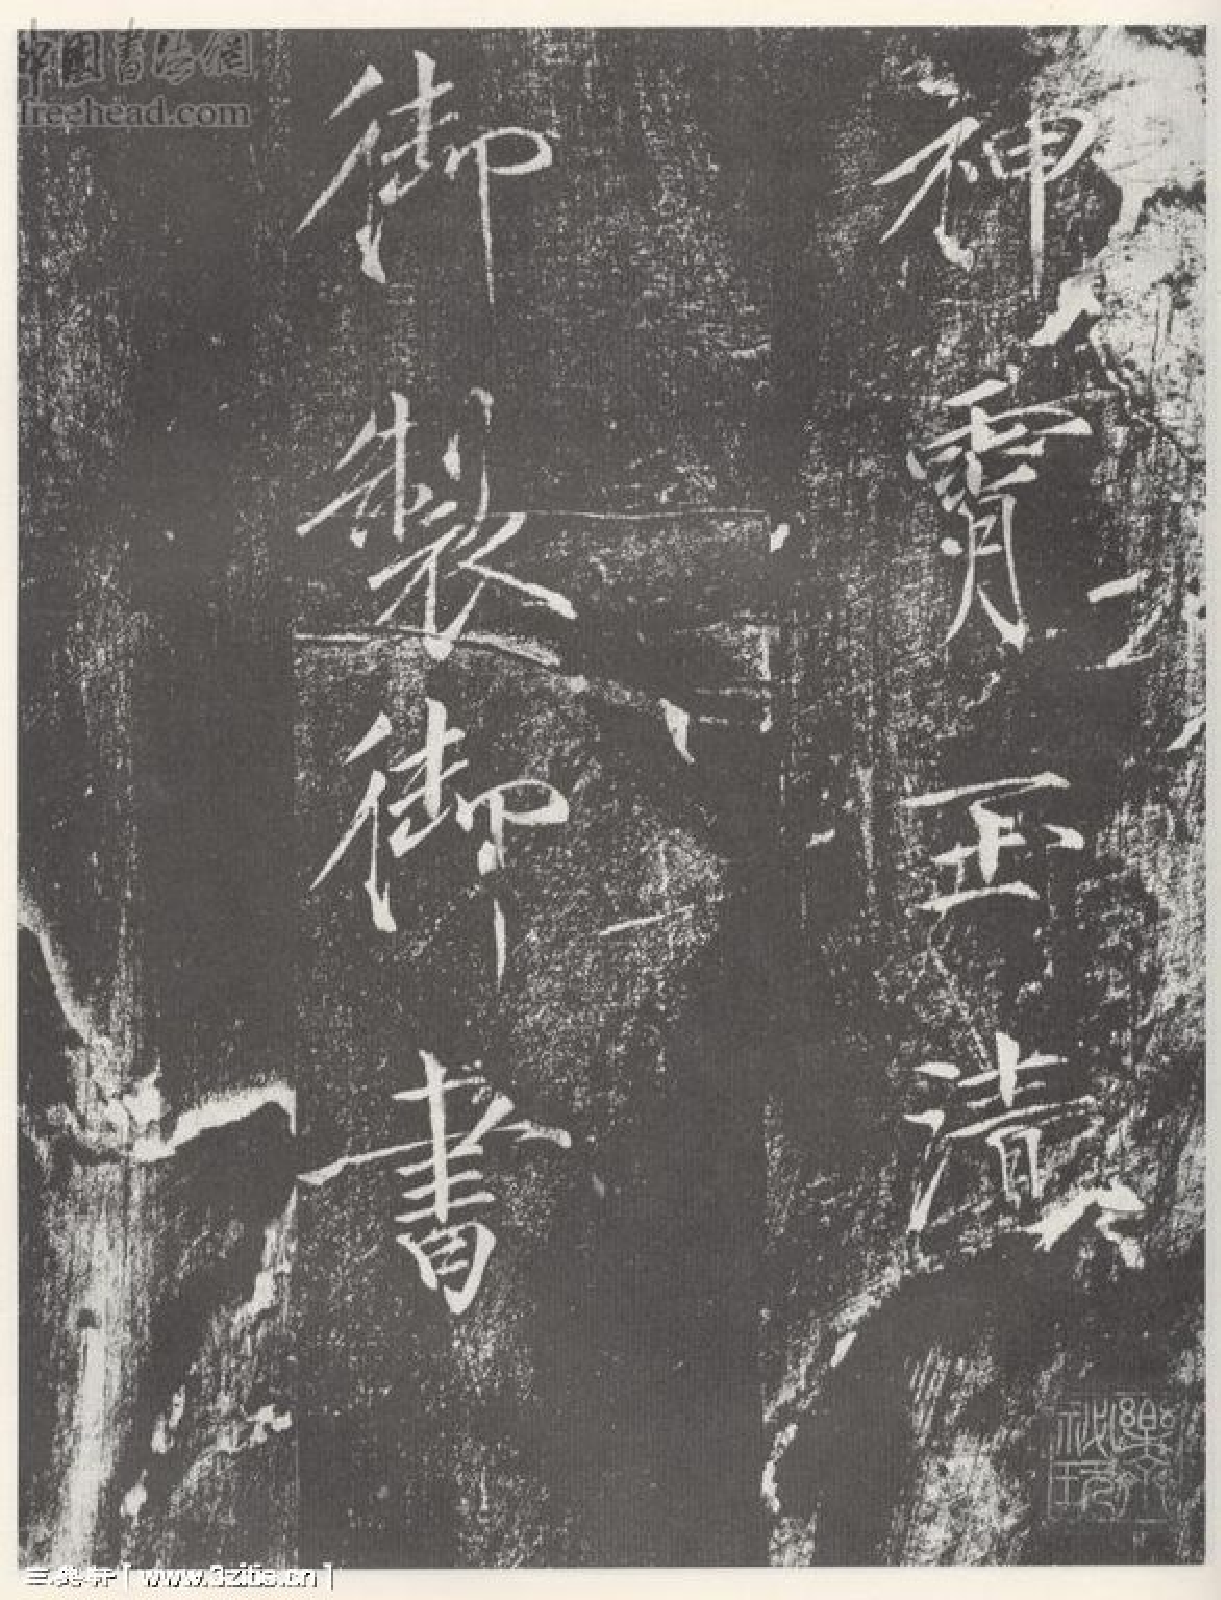 神霄玉清
御製御書
中国书法网
freehead.com
三典轩[ www.3zitie.cn ]